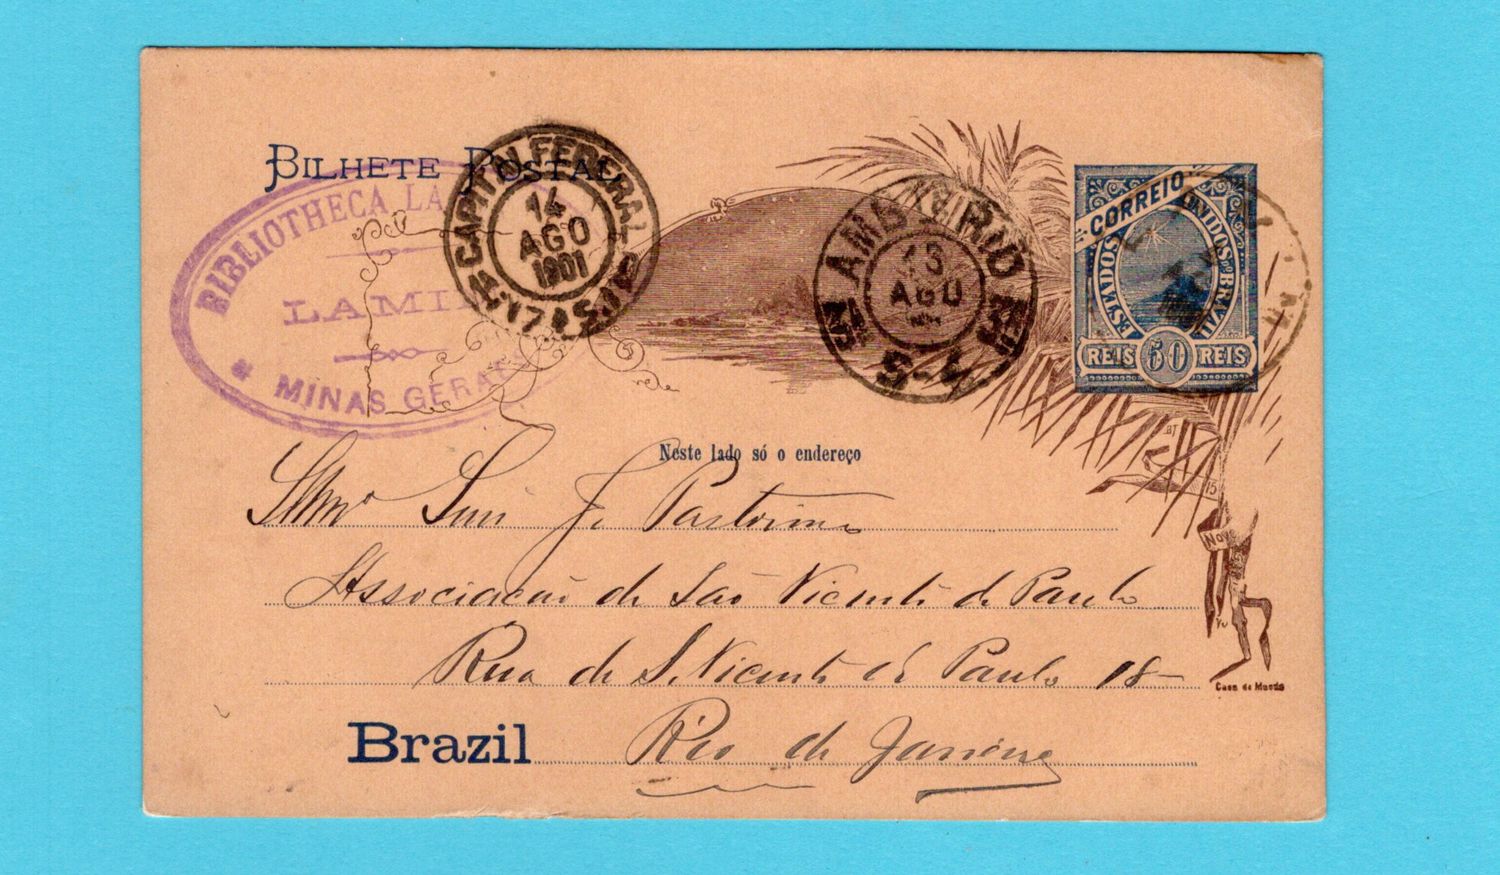 BILHETE POSTAL
BIBLIOTHECA LA
LAMI
MINAS GERAES
CAPITAL FEDERAL
14
AGO
1901
AMB. RIO
13
AGO
CORREIO
ESTADOS UNIDOS DO BRAZIL
REIS 50 REIS
Neste lado só o endereço
Illmo Luis J. Pastorino
Associação de São Vicente de Paulo
Rua de S. Vicente de Paulo 18
Brazil Rio de Janeiro
15
Nove
Casa da Moeda